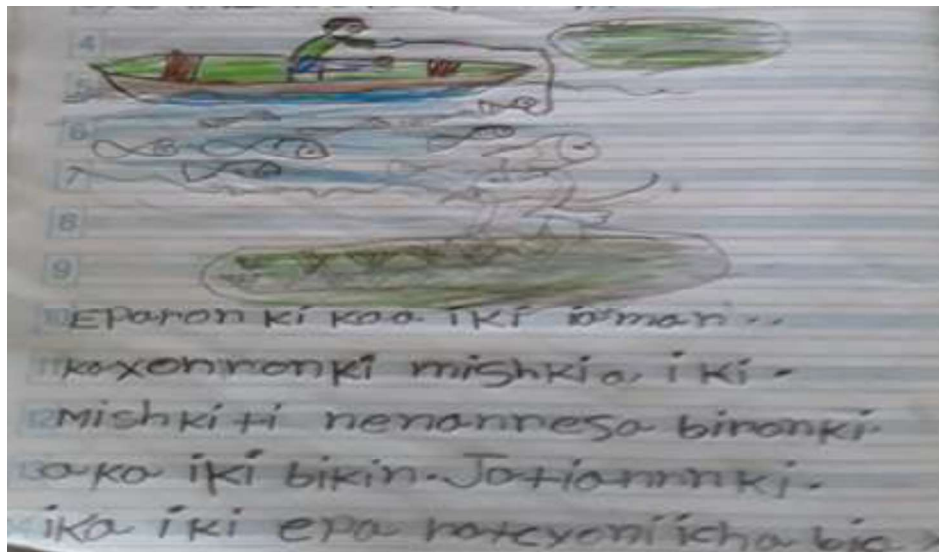 4
5
6
7
8
9
10 Eparonki kaa iki ianman..
kaxonronki mishkia, iki.
12 Mishkiti nenannesa bironki.
13 aka iki bikin. Jatianronki.
ika iki epa rateyoni icha bia